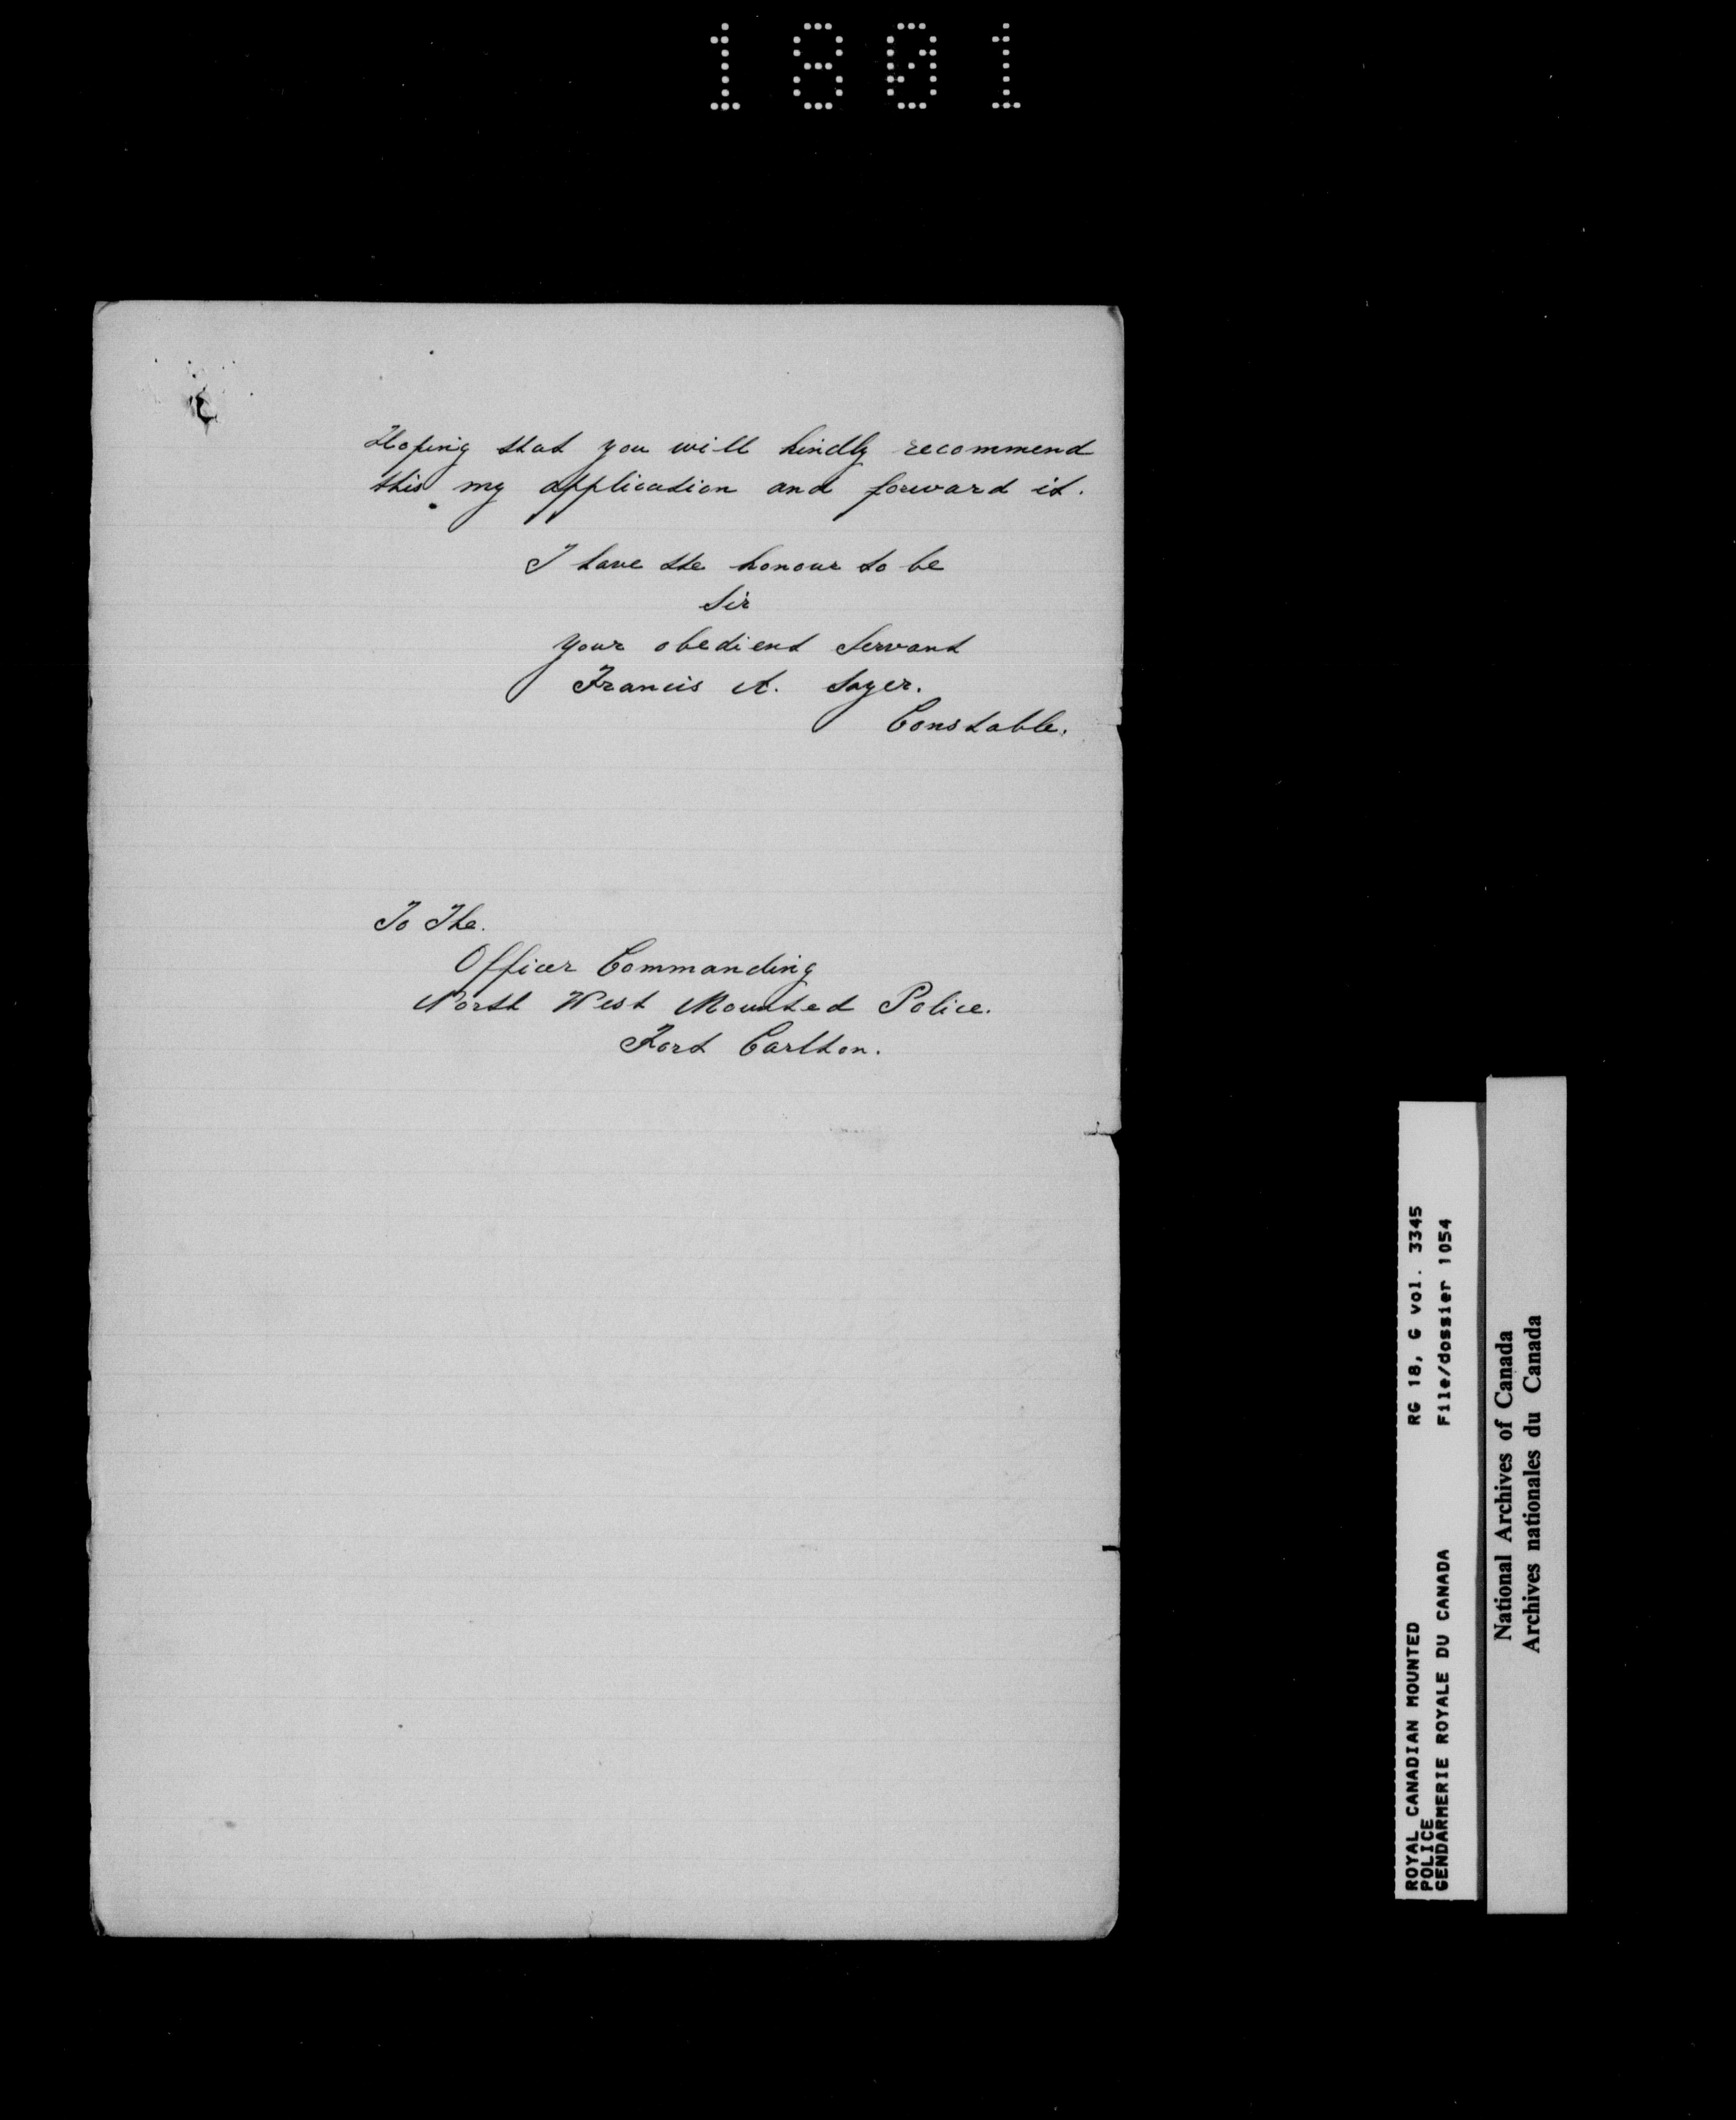 1801
Hoping that you will kindly recommend
this my application and forward it.
I have the honour to be
Sir
Your obedient Servant
Francis A. Sayer.
Constable.
To The.
Officer Commanding
North West Mounted Police.
Fort Carlton.
ROYAL CANADIAN MOUNTED
POLICE
GENDARMERIE ROYALE DU CANADA
RG 18, G vol. 3345
File/dossier 1054
National Archives of Canada
Archives nationales du Canada